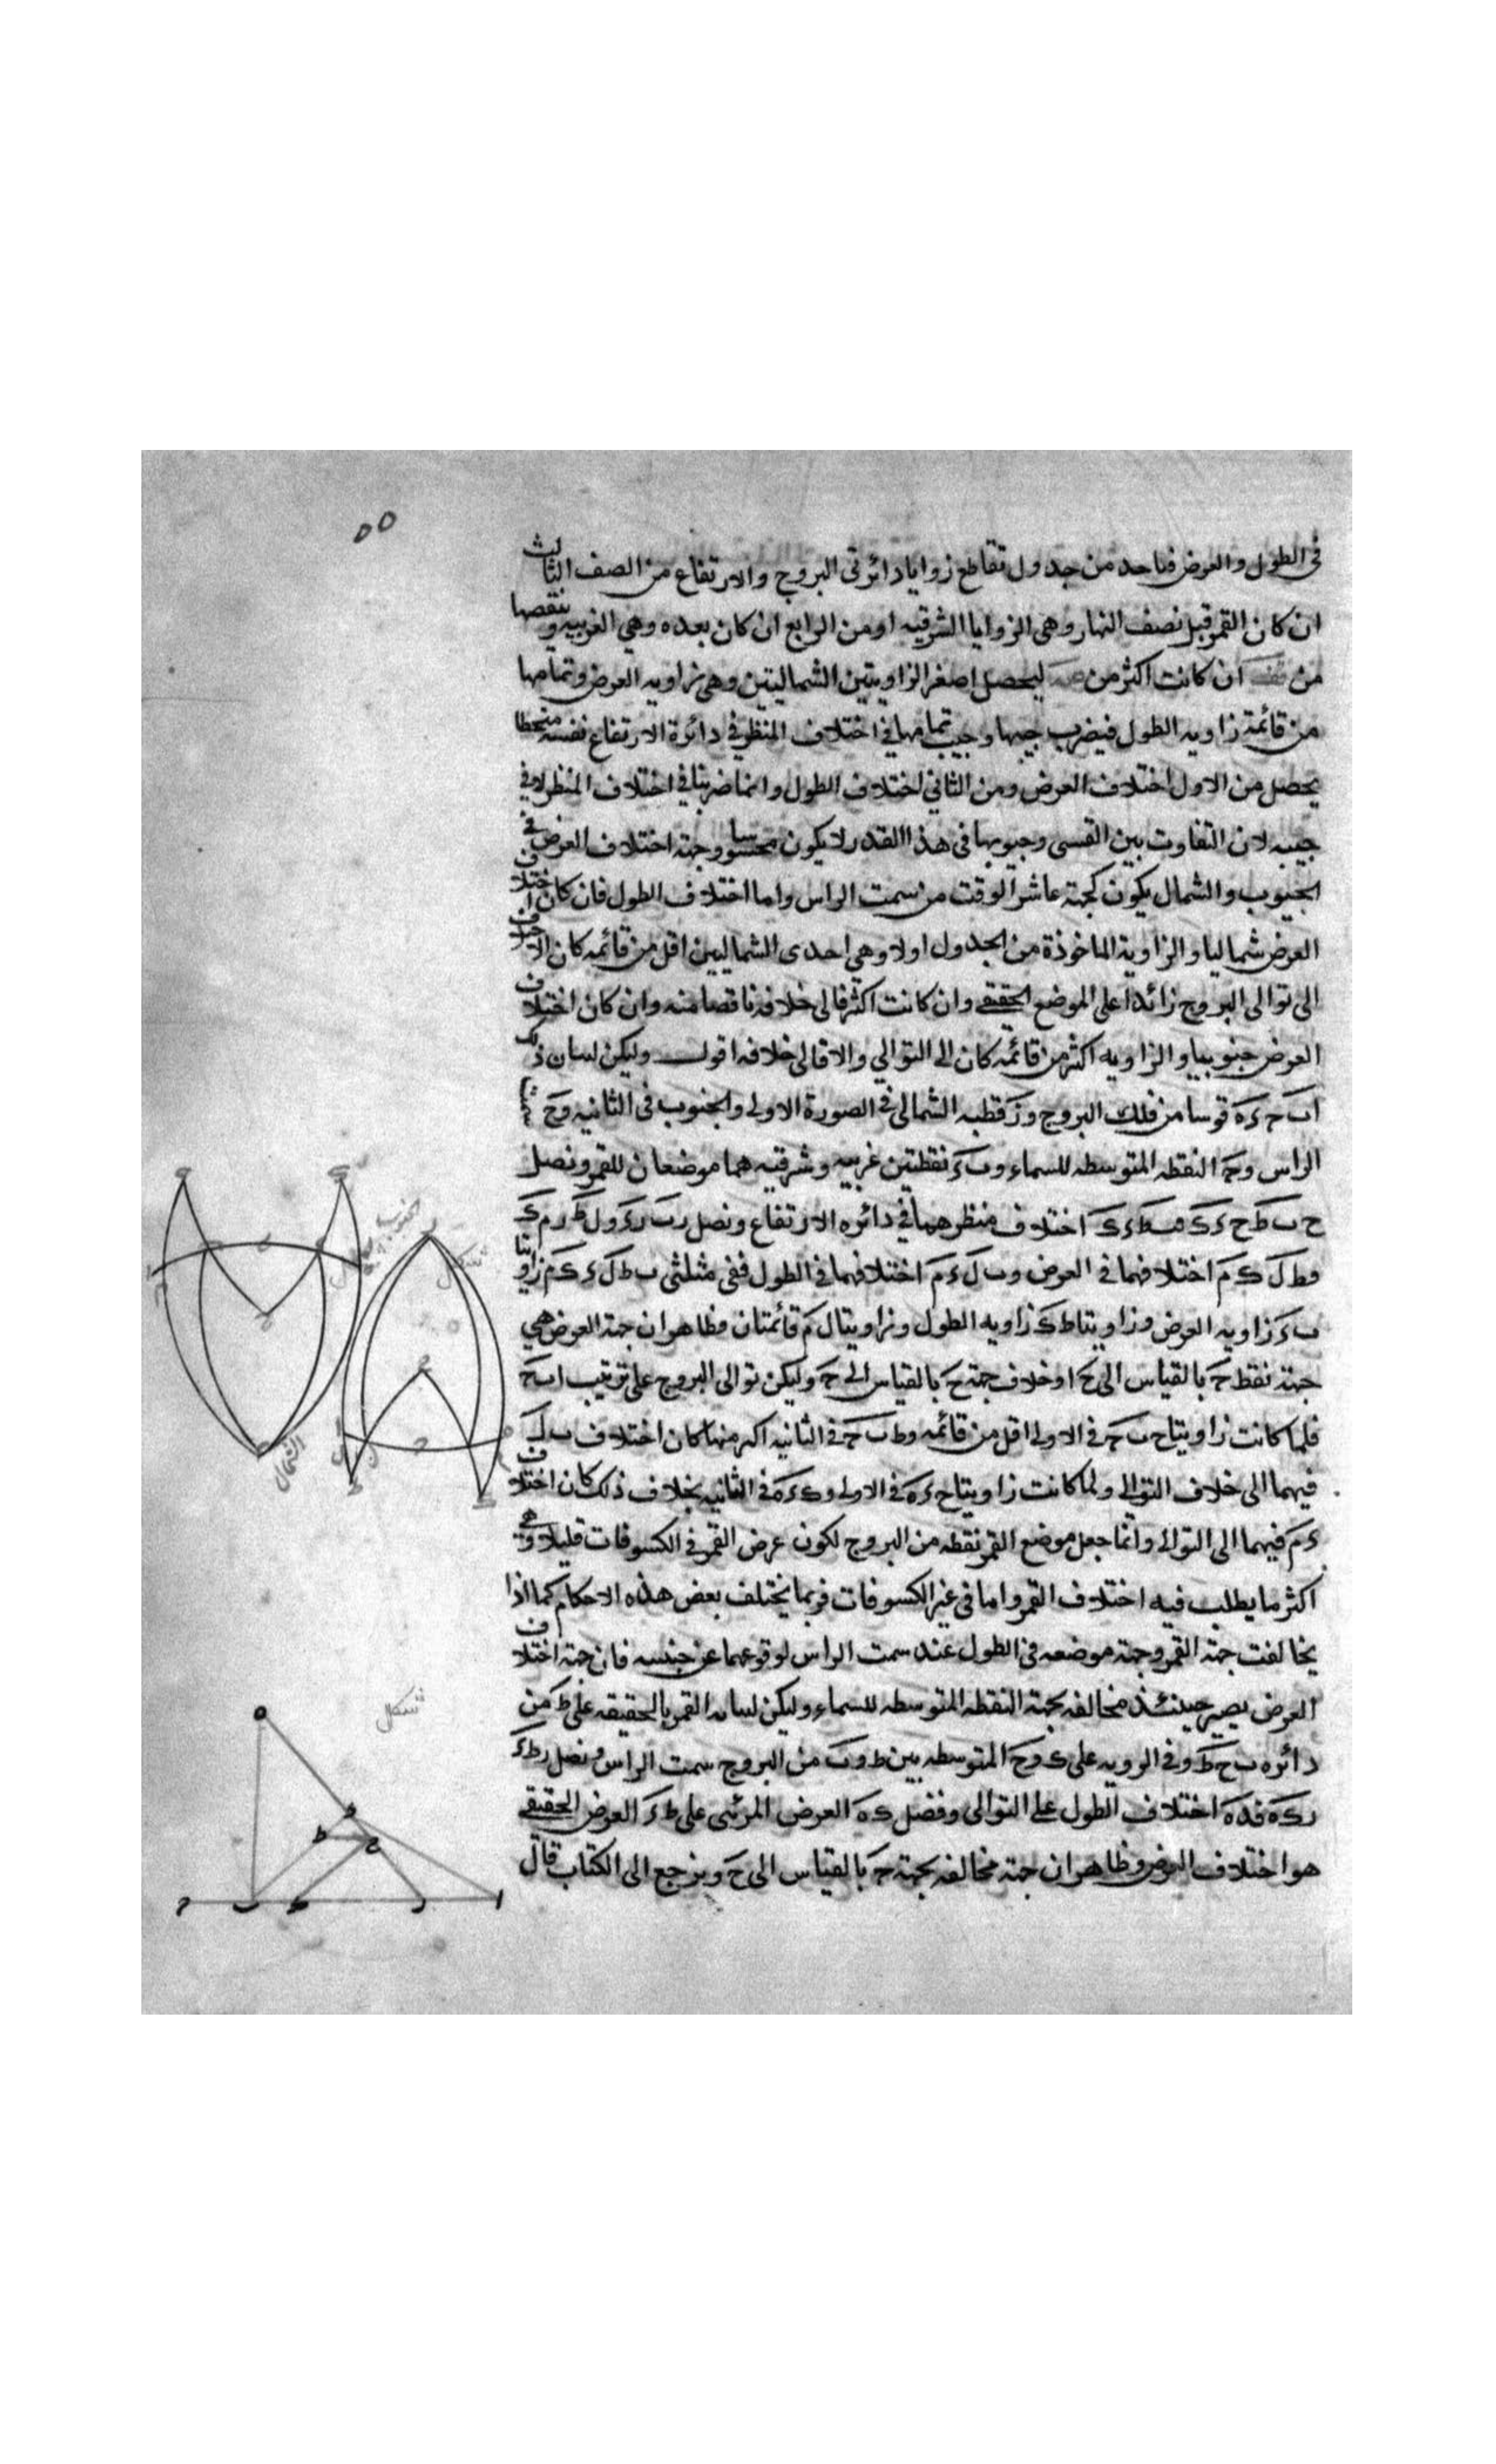 ٥٥
فى الطول والعرض فناخد من جدول تقاطع زوايا دائرتى البروج والارتفاع من الصف الثالث
ان كان القمر قبل نصف النهار وهى الزوايا الشرقيه او من الرابع ان كان بعده وهي الغربيه وننقصها
من ان كانت اكثر من ليحصل اصغر الزاويتين الشماليتين وهى زاويه العرض وتمامها
من قائمة زاويه الطول فيضرب جيبها وجيب تمامها فى اختلاف المنظر فى دائرة الارتفاع نفسه منحطا
يحصل من الاول اختلاف العرض ومن الثاني اختلاف الطول وانما ضربنا فى اختلاف المنظر لا فى
جيبه لان التفاوت بين القسى وجيوبها فى هذا القدر لا يكون محسوسا وجهة اختلاف العرض فى
الجنوب والشمال يكون كجهة عاشر الوقت من سمت الراس واما اختلاف الطول فان كان اختلاف
العرض شماليا والزاوية الماخوذة من الجدول اولا وهى احدى الشماليين اقل من قائمه كان الاختلاف
الى توالى البروج زائدا على الموضع الحقيقي وان كانت اكثر فالى خلافه ناقصا منه وان كان اختلاف
العرض جنوبيا والزاويه اكثر من قائمه كان الى التوالي والا فالى خلافه اقول وليكن لبيان ذلك
اب ح ء ه قوسا من فلك البروج و ز قطبه الشمالى فى الصورة الاولى والجنوب فى الثانيه و ح سمت
الراس و ح النقطه المتوسطه للسماء و ب ء نقطتين غربيه وشرقيه هما موضعان للقمر ونصل
ح ب ط ح ء ك ف ب ط ء ك اختلاف منظرهما فى دائره الارتفاع ونصل ر ب ر ء و ل ط ر م ك
ف ط ل ك م اختلافهما فى العرض و ب ل ء م اختلافهما فى الطول ففى مثلثى ب ط ل ء ك م زاويتا
ب ء زاويه العرض وزاويتا ط ك زاويه الطول وزاويتا ل م قائمتان فظاهر ان جهة العرض هي
جهة نقطه ح بالقياس الى ح او خلاف جهة ح بالقياس الى ح وليكن توالى البروج على ترتيب ا ب ح
فلما كانت زاويتا ح ب ح فى الاولى اقل من قائمه و ط ب ح فى الثانيه اكبر منها كان اختلاف ب ل
فيهما الى خلاف التوالي ولما كانت زاويتا ح ء ه فى الاولى و ك ء ه فى الثانيه بخلاف ذلك كان اختلاف
ء م فيهما الى التوالى وانما جعل موضع القمر نقطه من البروج لكون عرض القمر فى الكسوفات قليلا وهي
اكثر ما يطلب فيه اختلاف القمر واما فى غير الكسوفات فربما يختلف بعض هذه الاحكام كما اذا
يخالفت جهة القمر وجهة موضعه فى الطول عند سمت الراس لوقوعهما عن جنبيه فان جهة اختلاف
العرض يصير حينئذ مخالفه لجهة النقطه المتوسطه للسماء وليكن لبيانه القمر بالحقيقه على ط من
دائره ب ح ط وفى الرويه على ك و ح المتوسطه بين ط و ب من البروج سمت الراس ونصل ر ط ء
ر ك ه ف ء ه اختلاف الطول على التوالى وفضل ك ه العرض المرئى على ط ء العرض الحقيقي
هو اختلاف العرض وظاهر ان جهة مخالفه لجهة ح بالقياس الى ح ونرجع الى الكتاب قال
شكل
شكل